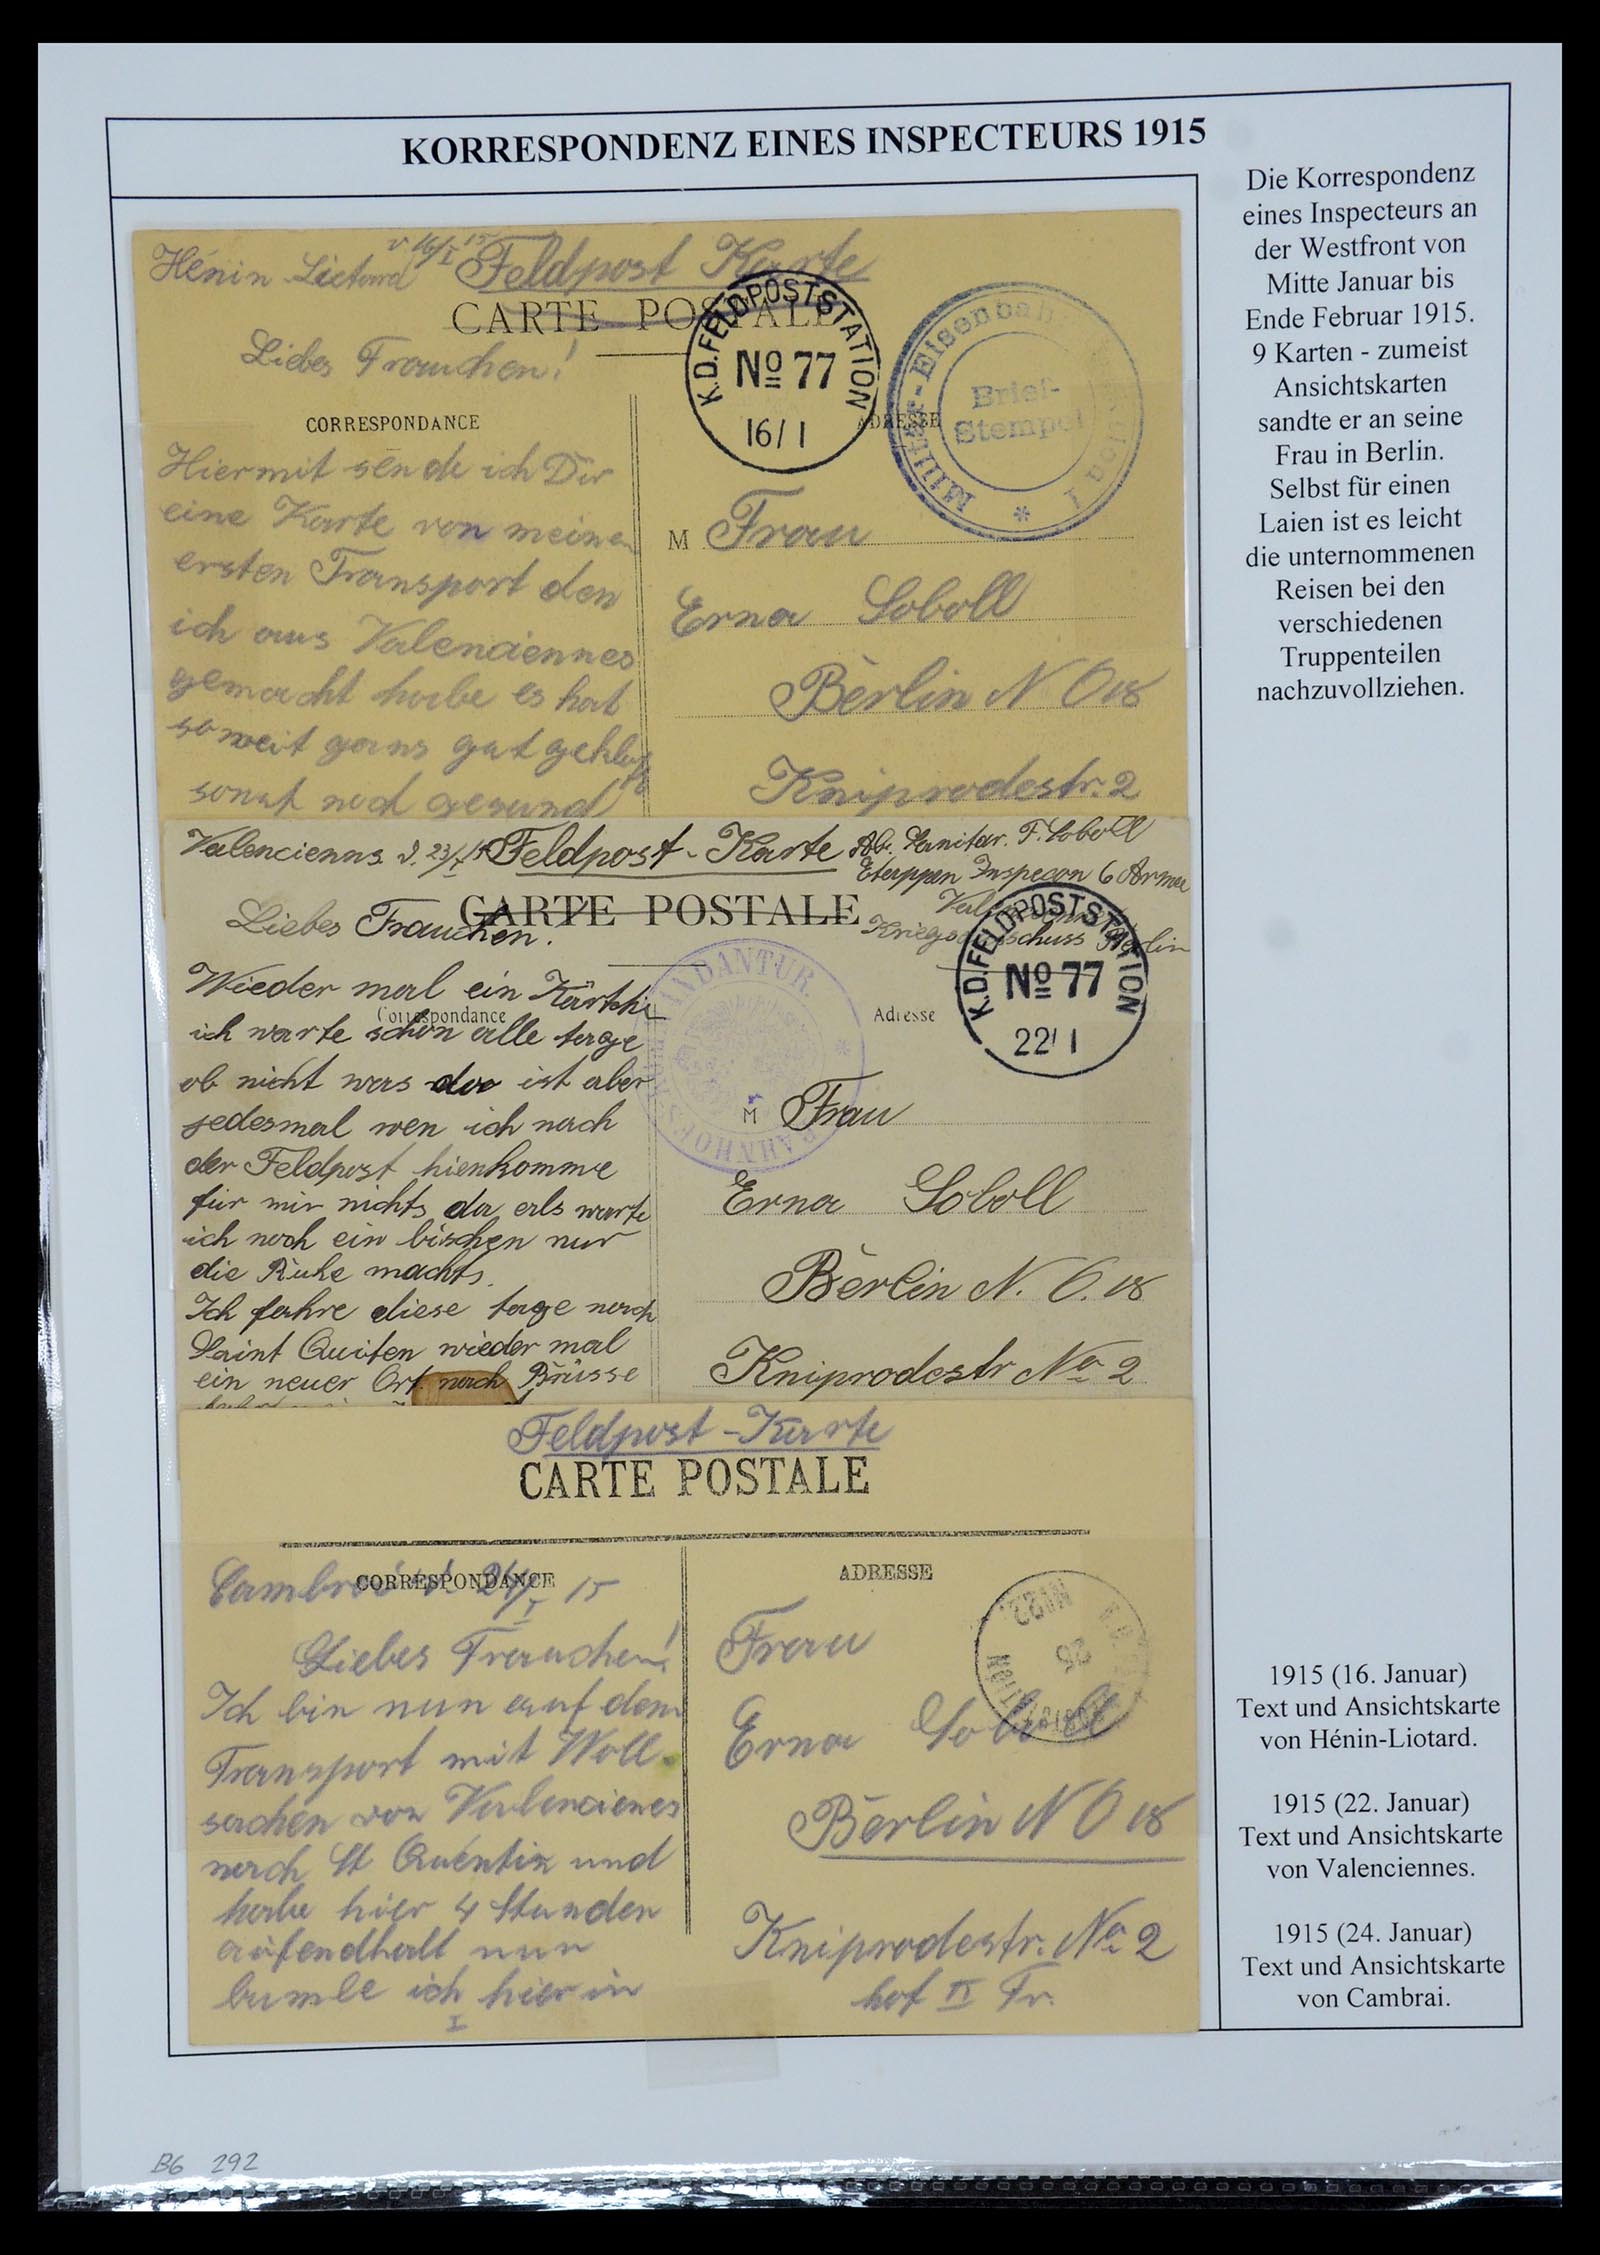 KORRESPONDENZ EINES INSPECTEURS 1915
Die Korrespondenz
eines Inspecteurs an
der Westfront von
Mitte Januar bis
Ende Februar 1915.
9 Karten - zumeist
Ansichtskarten
sandte er an seine
Frau in Berlin.
Selbst für einen
Laien ist es leicht
die unternommenen
Reisen bei den
verschiedenen
Truppenteilen
nachzuvollziehen.
Hénin Lietard v 16/I 15 Feldpost Karte
CARTE POSTALE
Liebes Frauchen!
K.D.FELDPOSTSTATION
No 77
16/1
Militär-Eisenbah
Brief-
Stempel
CORRESPONDANCE
ADRESSE
Hiermit sende ich Dir
eine Karte von meinen
ersten Transport den
ich aus Valenciennes
gemacht habe es hat
so weit gans gut geklappt
sonst noch gesund
M Frau
Erna Soboll
Berlin N O 18
Kniprodestr. 2
Valencienns d. 23/I 15 Feldpost-Karte Abs. Sanitär. F. Soboll
Etappen Inspecon 6 Armee
CARTE POSTALE
Kriegsausschuss Berlin
Liebes Frauchen!
K.D.FELDPOSTSTATION
No 77
22/1
BAHNHOFS ANDANTUR
Correspondance
Adresse
Wieder mal ein Kärtch
ich warte schon alle tage
ob nicht was da ist aber
jedesmal wen ich nach
der Feldpost hienkomme
für mir nichts da als warte
ich noch ein bischen nur
die Ruhe machts.
Ich fahre diese tage nach
Saint Quiten wieder mal
ein neuer Ort nach Brüsse
M Frau
Erna Soboll
Berlin N. O. 18
Kniprodestr No 2
Feldpost-Karte
CARTE POSTALE
CORRESPONDANCE
ADRESSE
Cambrai d. 24/I 15
Liebes Frauchen!
Ich bin nun auf dem
Transport mit Woll
sachen von Valencienes
nach St Quentin und
habe hier 4 Stunden
aufendhalt nun
bumle ich hier in
I
Frau
Erna Soboll
Berlin N O 18
Kniprodestr. No 2
hof II Tr.
1915 (16. Januar)
Text und Ansichtskarte
von Hénin-Liotard.
1915 (22. Januar)
Text und Ansichtskarte
von Valenciennes.
1915 (24. Januar)
Text und Ansichtskarte
von Cambrai.
B6 292